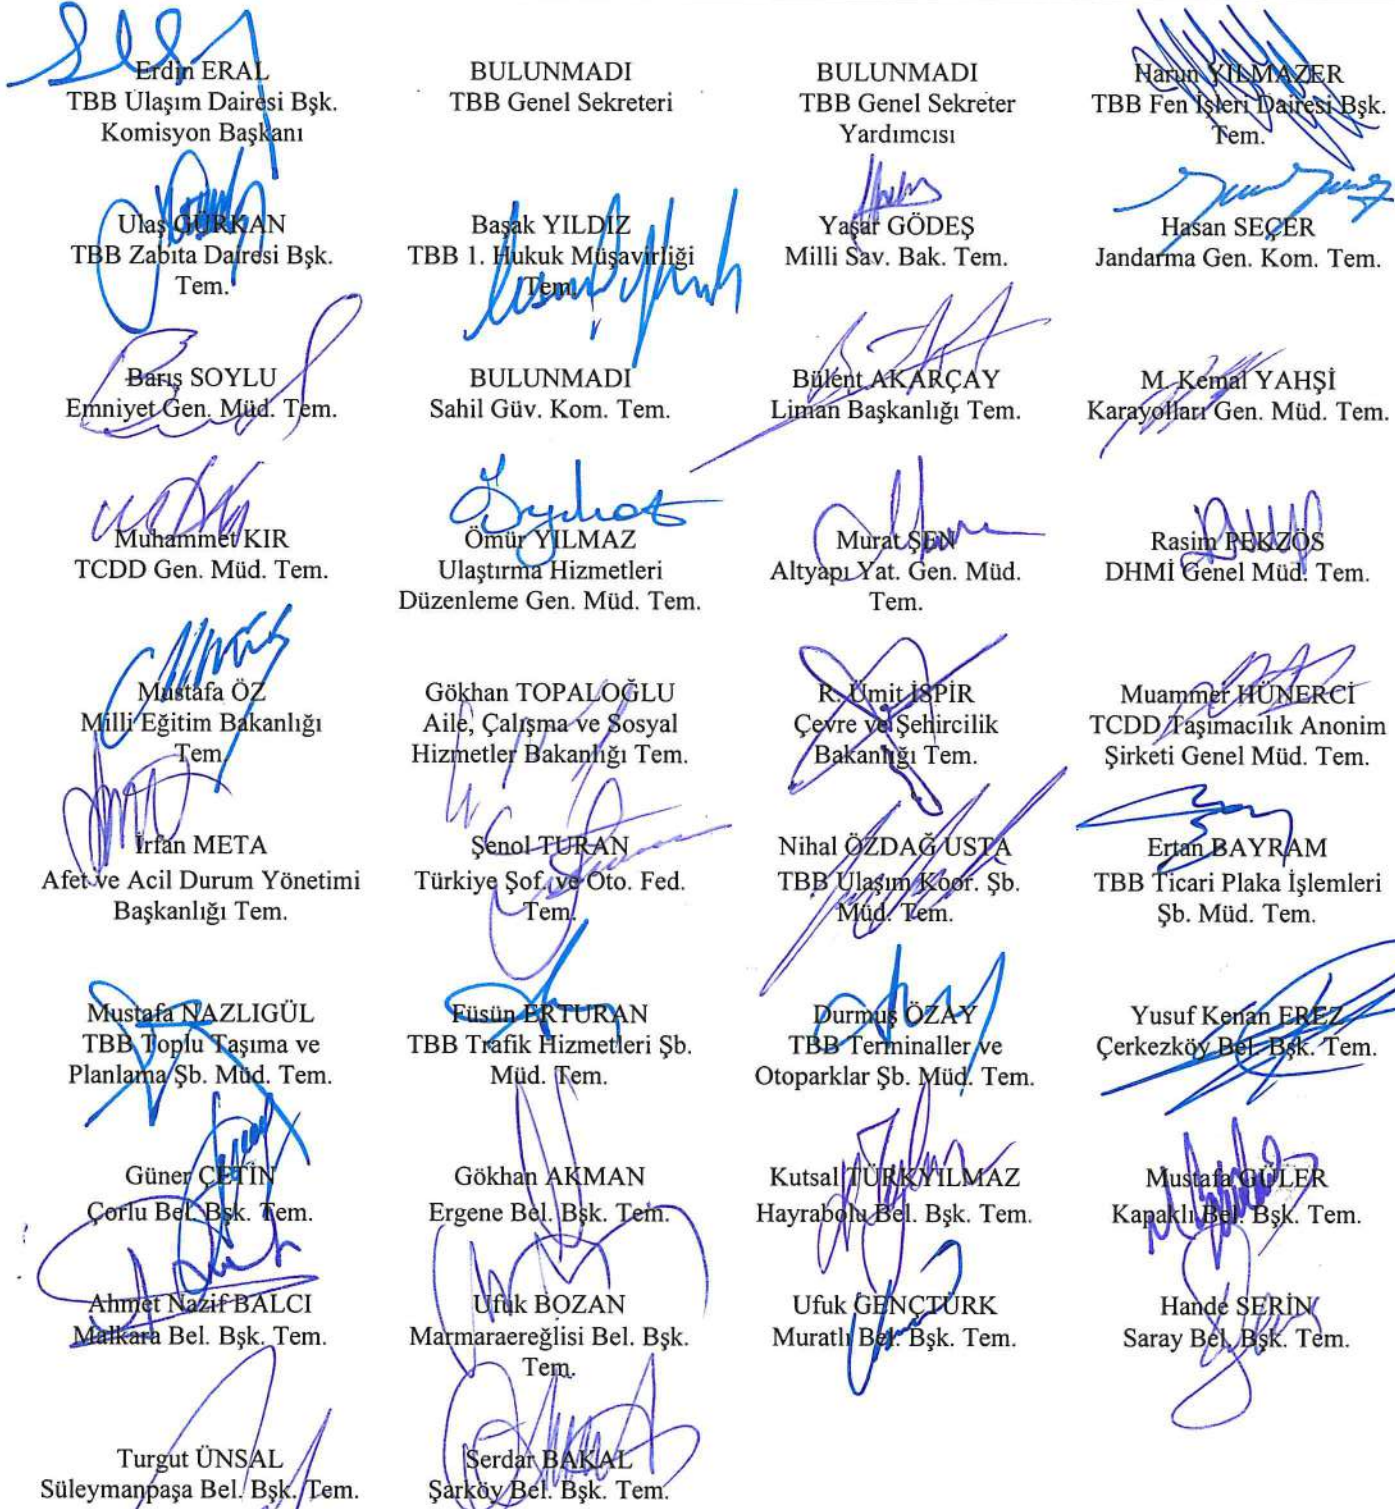 Erdin ERAL
TBB Ulaşım Dairesi Bşk.
Komisyon Başkanı
BULUNMADI
TBB Genel Sekreteri
BULUNMADI
TBB Genel Sekreter
Yardımcısı
Harun YILMAZER
TBB Fen İşleri Dairesi Bşk.
Tem.
Ulaş GÜRKAN
TBB Zabıta Dairesi Bşk.
Tem.
Başak YILDIZ
TBB 1. Hukuk Müşavirliği
Tem.
Yaşar GÖDEŞ
Milli Sav. Bak. Tem.
Hasan SEÇER
Jandarma Gen. Kom. Tem.
Barış SOYLU
Emniyet Gen. Müd. Tem.
BULUNMADI
Sahil Güv. Kom. Tem.
Bülent AKARÇAY
Liman Başkanlığı Tem.
M. Kemal YAHŞİ
Karayolları Gen. Müd. Tem.
Muhammet KIR
TCDD Gen. Müd. Tem.
Ömür YILMAZ
Ulaştırma Hizmetleri
Düzenleme Gen. Müd. Tem.
Murat ŞEN
Altyapı Yat. Gen. Müd.
Tem.
Rasim PEKZÖS
DHMİ Genel Müd. Tem.
Mustafa ÖZ
Milli Eğitim Bakanlığı
Tem.
Gökhan TOPALOĞLU
Aile, Çalışma ve Sosyal
Hizmetler Bakanlığı Tem.
R. Ümit İSPİR
Çevre ve Şehircilik
Bakanlığı Tem.
Muammer HÜNERCİ
TCDD Taşımacılık Anonim
Şirketi Genel Müd. Tem.
İrfan META
Afet ve Acil Durum Yönetimi
Başkanlığı Tem.
Şenol TURAN
Türkiye Şof. ve Oto. Fed.
Tem.
Nihal ÖZDAĞ USTA
TBB Ulaşım Koor. Şb.
Müd. Tem.
Ertan BAYRAM
TBB Ticari Plaka İşlemleri
Şb. Müd. Tem.
Mustafa NAZLIGÜL
TBB Toplu Taşıma ve
Planlama Şb. Müd. Tem.
Füsün ERTURAN
TBB Trafik Hizmetleri Şb.
Müd. Tem.
Durmuş ÖZAY
TBB Terminaller ve
Otoparklar Şb. Müd. Tem.
Yusuf Kenan EREZ
Çerkezköy Bel. Bşk. Tem.
Güner ÇETİN
Çorlu Bel. Bşk. Tem.
Gökhan AKMAN
Ergene Bel. Bşk. Tem.
Kutsal TÜRKYILMAZ
Hayrabolu Bel. Bşk. Tem.
Mustafa GÜLER
Kapaklı Bel. Bşk. Tem.
Ahmet Nazif BALCI
Malkara Bel. Bşk. Tem.
Ufuk BOZAN
Marmaraereğlisi Bel. Bşk.
Tem.
Ufuk GENÇTÜRK
Muratlı Bel. Bşk. Tem.
Hande SERİN
Saray Bel. Bşk. Tem.
Turgut ÜNSAL
Süleymanpaşa Bel. Bşk. Tem.
Serdar BAKAL
Şarköy Bel. Bşk. Tem.